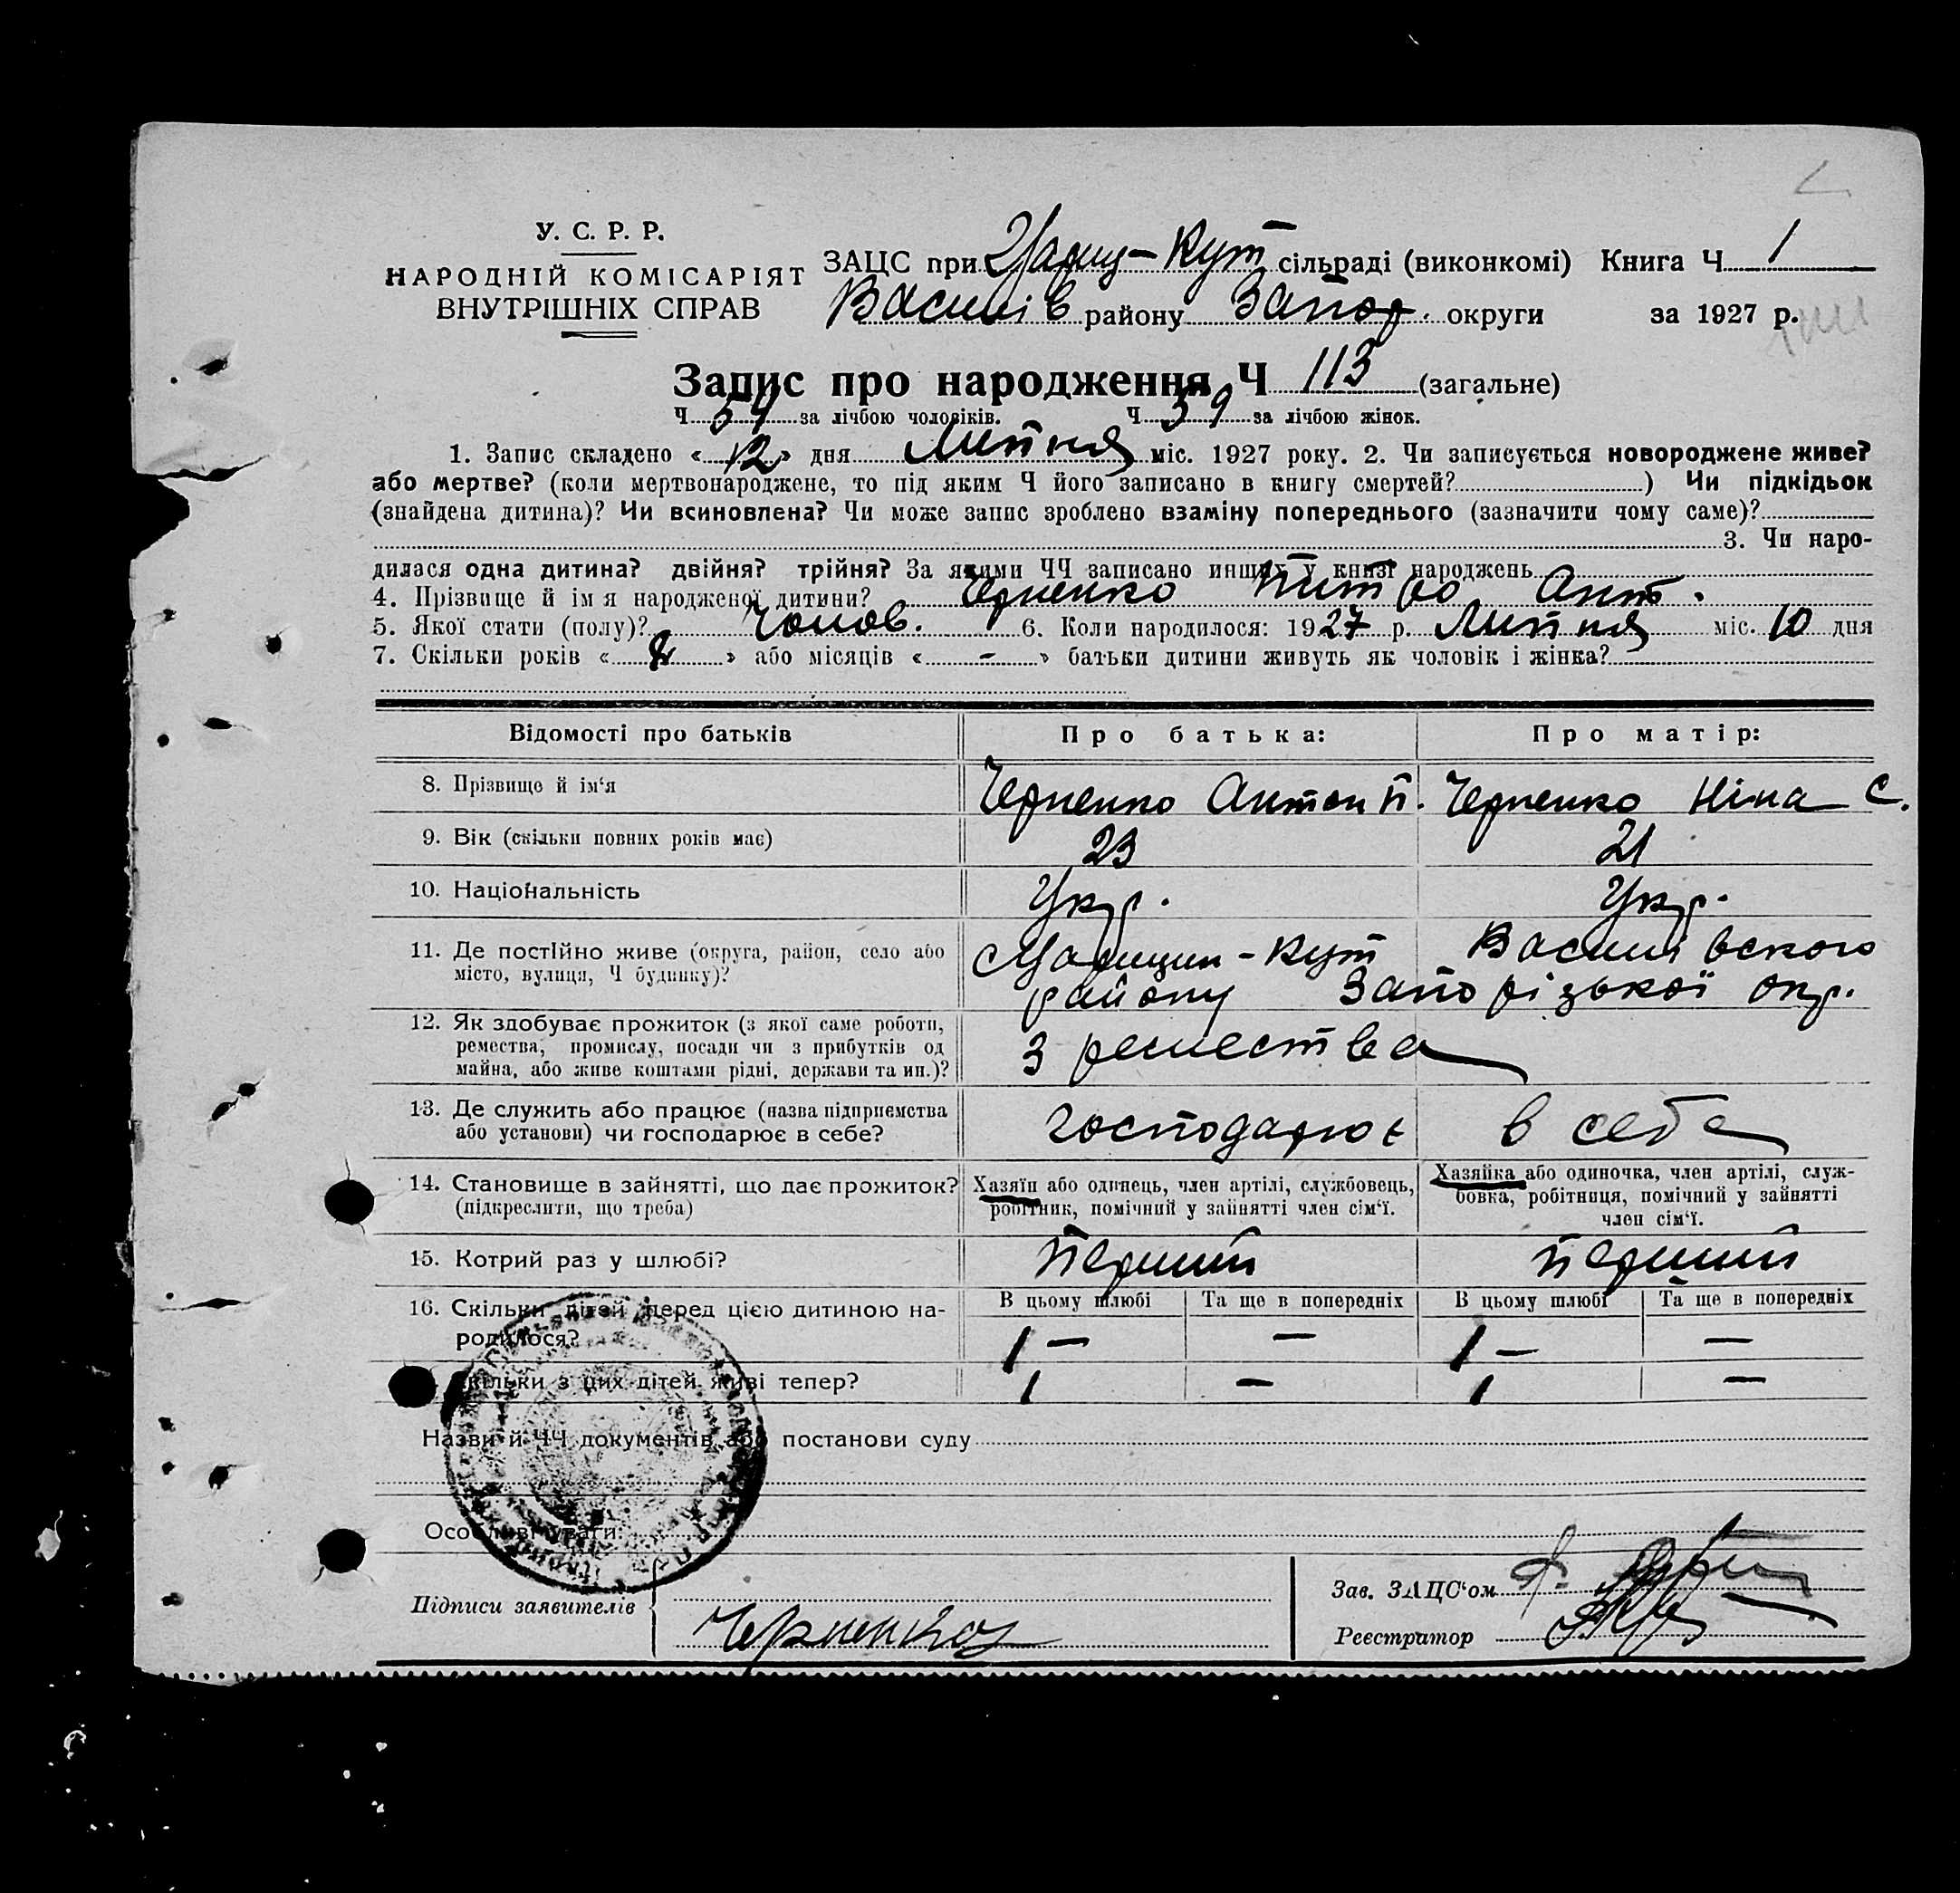 У. С. Р. Р.
НАРОДНІЙ КОМІСАРІЯТ
ВНУТРІШНІХ СПРАВ
ЗАЦС при Цариц-Кут сільраді (виконкомі) Книга Ч 1
Василів району Запор. округи за 1927 р.
Запис про народження Ч 113 (загальне)
Ч 54 за лічбою чоловіків. Ч 59 за лічбою жінок.
1. Запис складено «12» дня Липня міс. 1927 року. 2. Чи записується новороджене живе?
або мертве? (коли мертвонароджене, то під яким Ч його записано в книгу смертей? ) Чи підкідьок
(знайдена дитина)? Чи всиновлена? Чи може запис зроблено взаміну попереднього (зазначити чому саме)?
3. Чи наро-
дилася одна дитина? двійня? трійня? За якими ЧЧ записано инших у книзі народжень
4. Прізвище й ім я народженої дитини? Черненко Ант.
5. Якої стати (полу)? Чолов. 6. Коли народилося: 1927 р. Липня міс. 10 дня
7. Скільки років « » або місяців «-» батьки дитини живуть як чоловік і жінка?
Відомості про батьків Про батька: Про матір:
8. Прізвище й ім'я Черненко Антон П. Черненко Ніна С.
9. Вік (скільки повних років має) 23 21
10. Національність Укр. Укр.
11. Де постійно живе (округа, район, село або Царицин-Кут Василівского
місто, вулиця, Ч будинку)? району Запорізької окр.
12. Як здобуває прожиток (з якої саме роботи,
ремества, промислу, посади чи з прибутків од З ремества
майна, або живе коштами рідні, держави та ин.)?
13. Де служить або працює (назва підприємства
або установи) чи господарює в себе? господарює в себе
14. Становище в зайнятті, що дає прожиток? Хазяїн або одинець, член артілі, службовець, Хазяйка або одиночка, член артілі, служ-
(підкреслити, що треба) робітник, помічний у зайнятті член сім'ї. бовка, робітниця, помічний у зайнятті
член сім'ї.
15. Котрий раз у шлюбі? Перший перший
16. Скільки дітей перед цією дитиною на- В цьому шлюбі Та ще в попередніх В цьому шлюбі Та ще в попередніх
родилося? 1 — — 1 — —
Скільки з цих дітей живі тепер? 1 — 1 —
Назви й ЧЧ документів або постанови суду
Особливі уваги:
Підписи заявителів Черненко
Зав. ЗАЦС'ом
Реєстратор